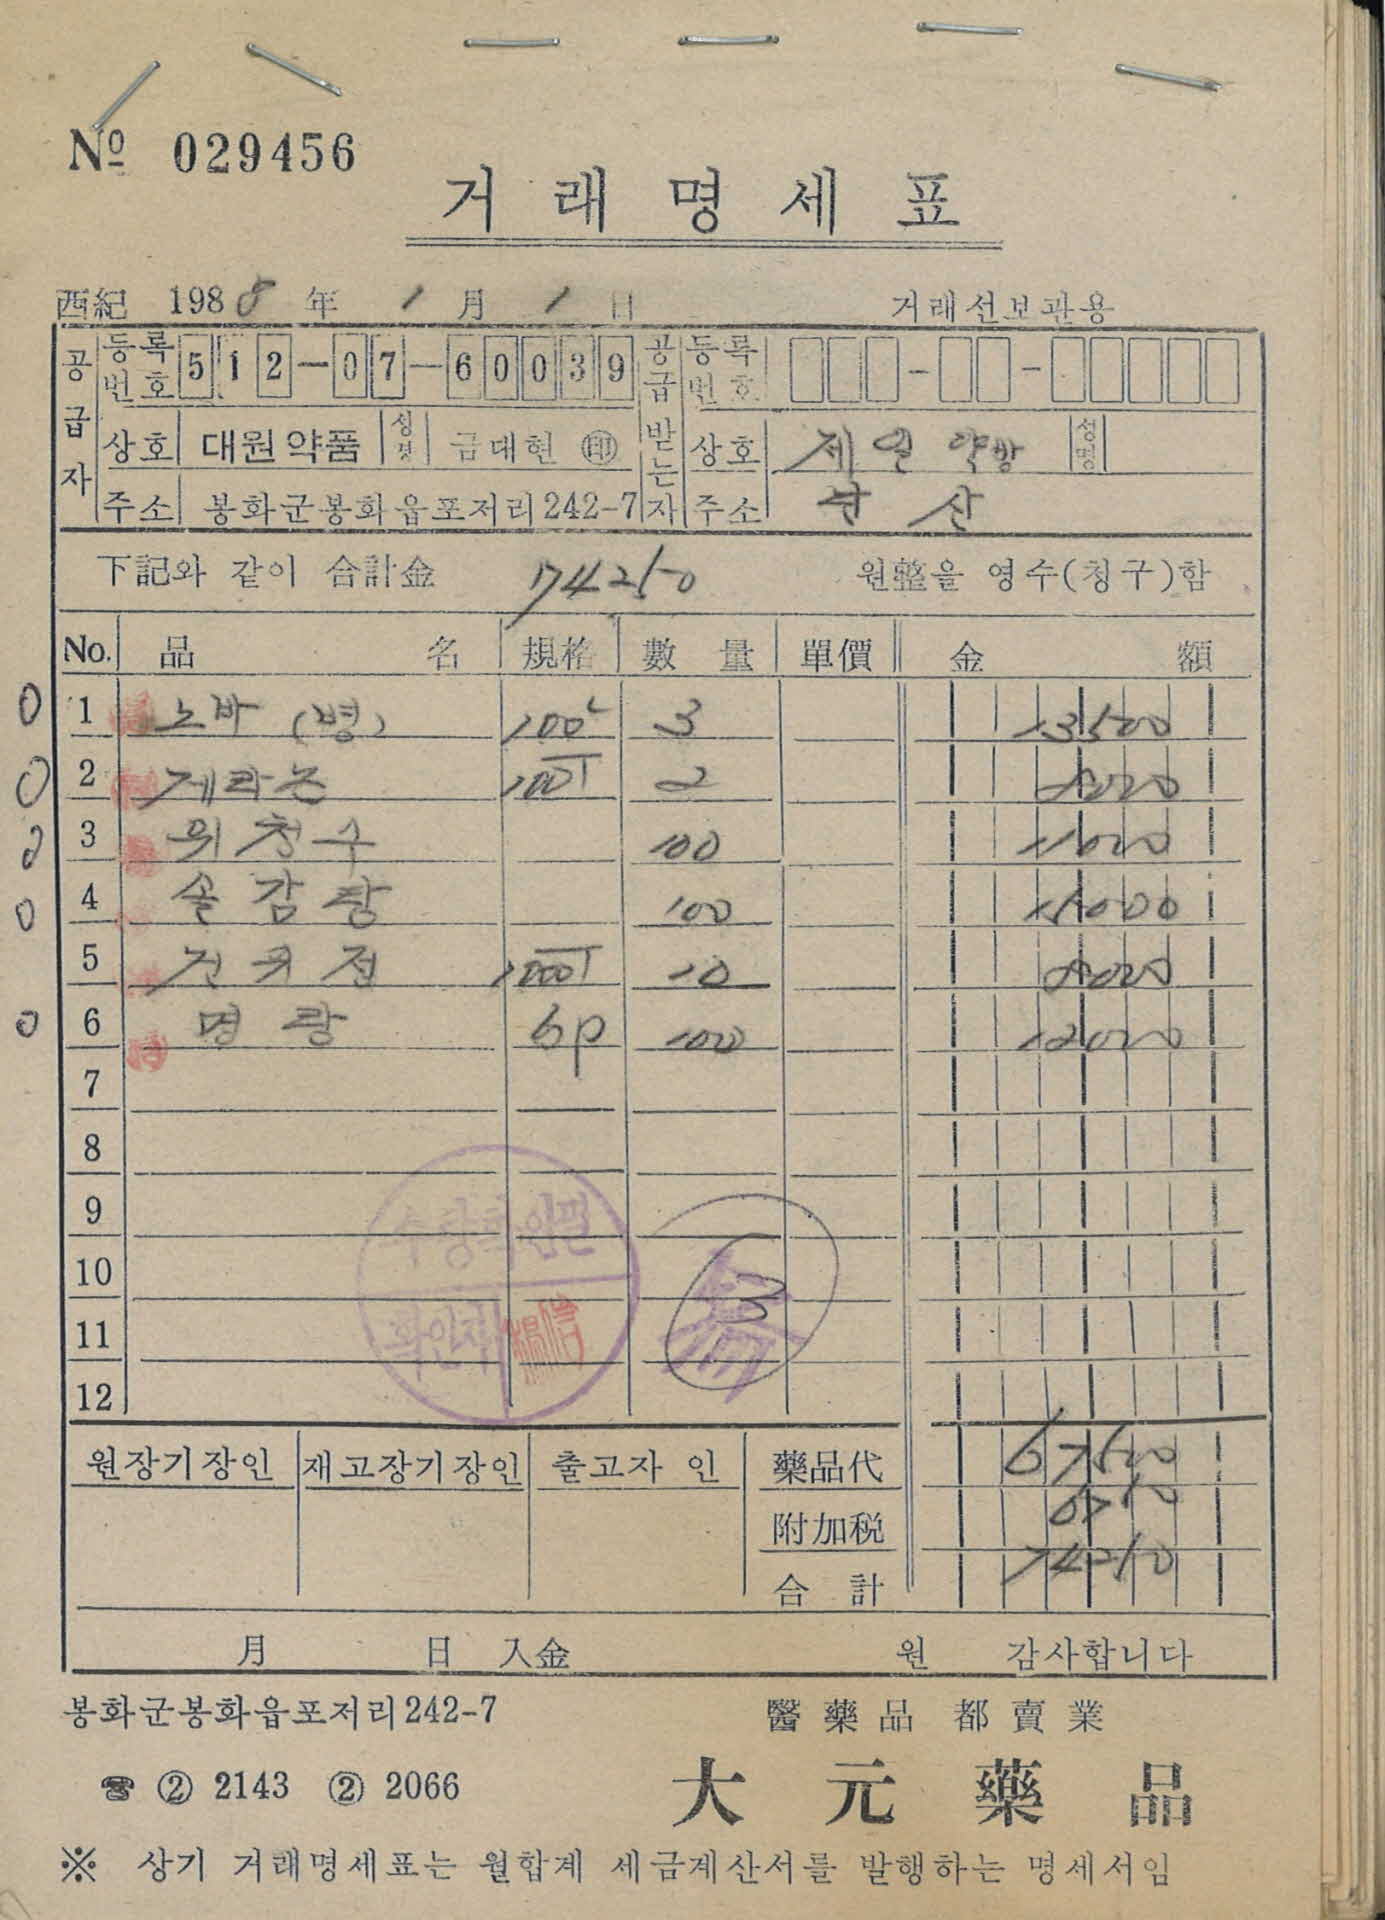 No 029456
거래명세표
西紀 1988年 1月 1日 거래선보관용
공급자 등록번호 512-07-60039 공급받는자 등록번호 - -
상호 대원약품 성명 금대현 ㊞ 상호 제일약방 성명
주소 봉화군봉화읍포저리242-7 주소
下記와 같이 合計金 74250 원整을 영수(청구)함
No. 品名 規格 數量 單價 金額
1 노바 (병) 100 3 13500
2 게라논 100T 2 8000
3 위청수 100 11000
4 쏠감탕 100 15000
5 건위정 1000T 10 8000
6 명랑 6p 100 12000
7
8
9
10
11
12
수량확인필
확인자
3
원장기장인 재고장기장인 출고자 인 藥品代 67500
附加税 6750
合計 74250
月 日 入金 원 감사합니다
봉화군봉화읍포저리242-7 醫藥品 都賣業
☎ ② 2143 ② 2066 大元藥品
※ 상기 거래명세표는 월합계 세금계산서를 발행하는 명세서임